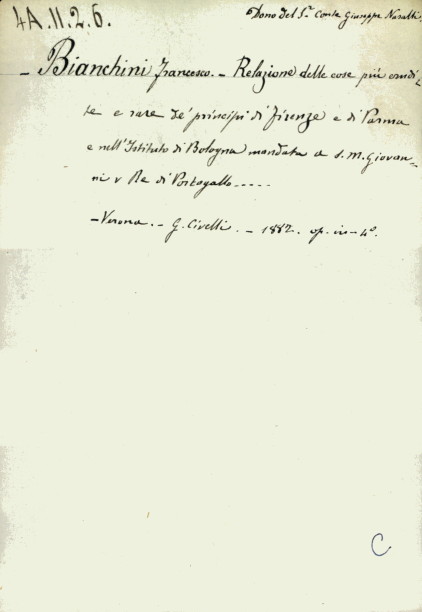 4A.11.2.6.
Dono del S.r Conte Giuseppe
_ Bianchini Francesco. - Relazione delle cose più erudi-
te e rare de' principi di Firenze e di Parma
e nell'Istituto di Bologna mandata a S. M. Giovan-
ni V Re di Portogallo.....
- Verona. - G. Civelli. - 1882. op. in-4°.
C